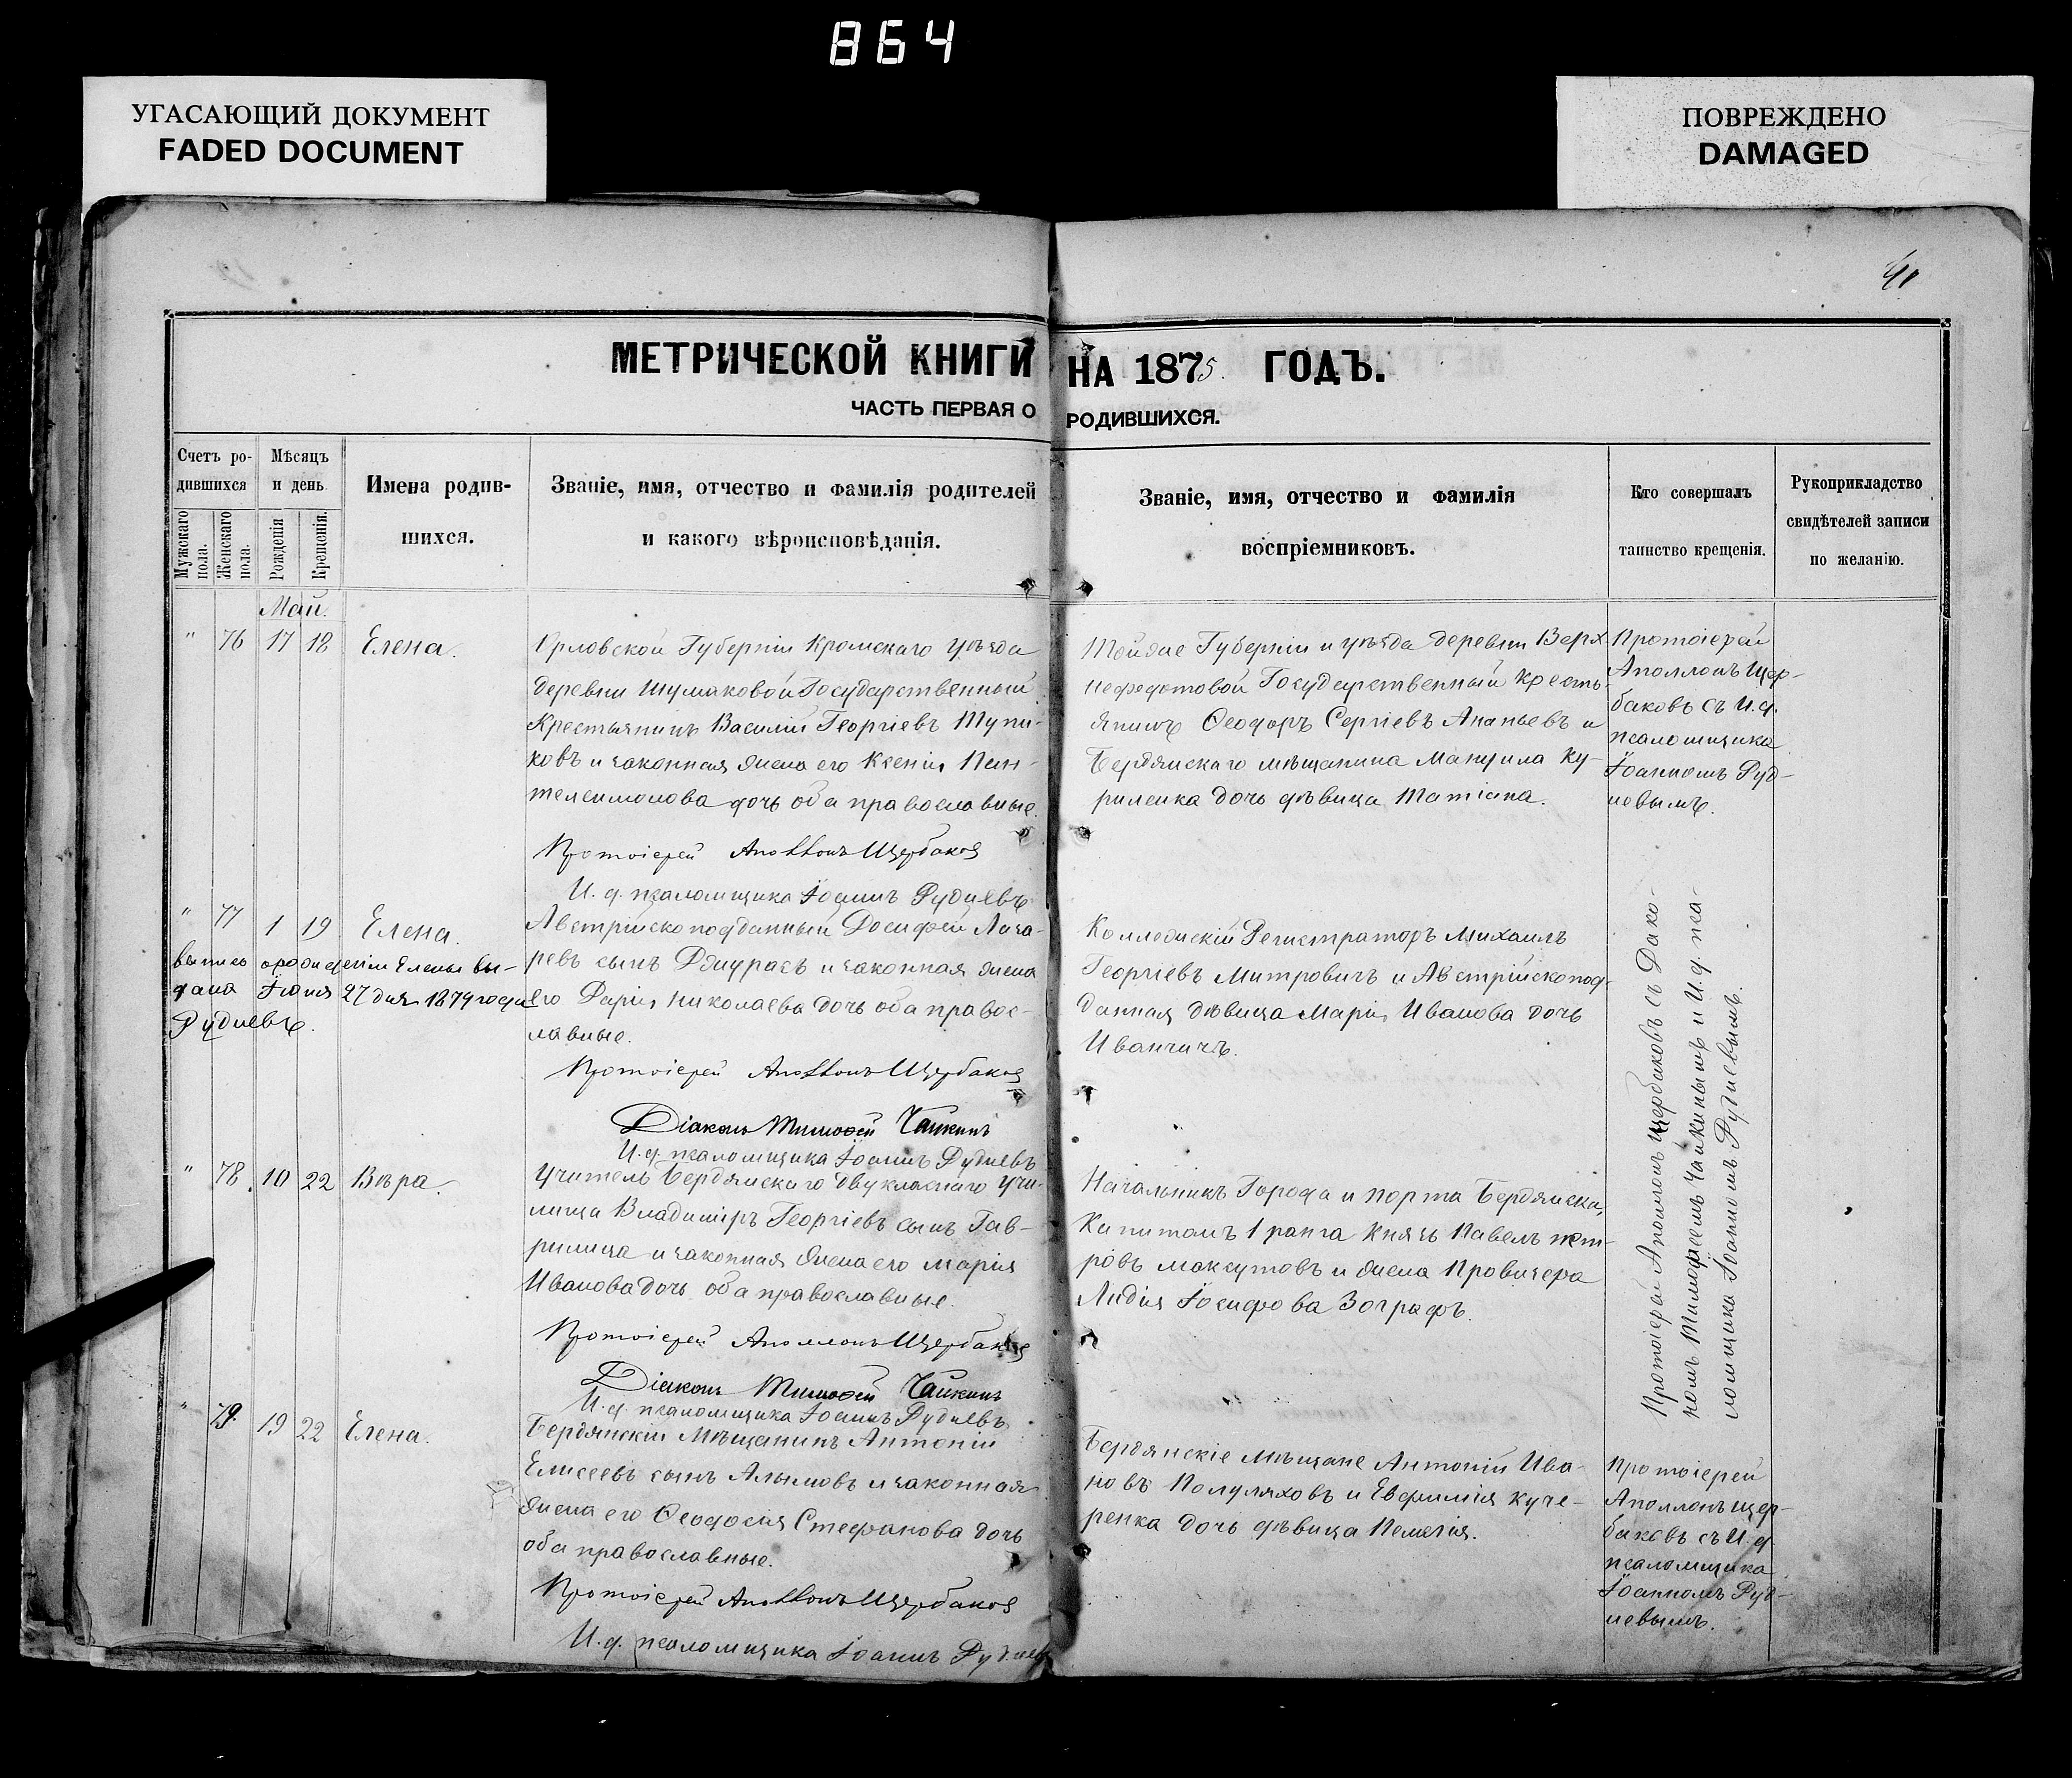 864
УГАСАЮЩИЙ ДОКУМЕНТ
FADED DOCUMENT
ПОВРЕЖДЕНО
DAMAGED
МЕТРИЧЕСКОЙ КНИГИ НА 1875 ГОДЪ.
ЧАСТЬ ПЕРВАЯ О РОДИВШИХСЯ.
Счетъ ро-
дившихся
Мужскаго пола.
Женскаго пола.
Мѣсяцъ
и день
Рожденія
Крещенія.
Имена родив-
шихся.
Званіе, имя, отчество и фамилія родителей
и какого вѣроисповѣданія.
Званіе, имя, отчество и фамилія
воспріемниковъ.
Кто совершалъ
таинство крещенія.
Рукоприкладство
свидѣтелей записи
по желанію.
Май.
" 76 17 18 Елена.
Орловской Губерніи Кромскаго уѣзда
деревни Шумаковой Государственный
Крестьянинъ Василій Георгіевъ Тупи-
ковъ и законная жена его Ксенія Пан-
телеимонова дочь оба православные.
Протоіерей Аполлонъ Щербаковъ
И. д. псаломщика Іоаннъ Рудневъ
Тойже Губерніи и уѣзда деревни Верх
нефедотовой Государственный кресть-
янинъ Ѳеодоръ Сергіевъ Ананьевъ и
Бердянскаго мѣщанина Мануила Ку-
риленка дочь дѣвица Татіана.
Протоіерей
Аполлонъ Щер-
баковъ съ И. д.
псаломщика
Іоанномъ Руд-
невымъ.
" 77 1 19 Елена.
выпись о рожденіи Елены вы-
дана Іюня 27 дня 1879 года
Рудневъ.
Австрійскоподданный Досифей Лаза-
ревъ сынъ и законная жена
его Дарія Николаева дочь оба правос-
лавные.
Протоіерей Аполлонъ Щербаковъ
Діаконъ Тимофей Чайкинъ
И. д. псаломщика Іоаннъ Рудневъ
Коллежскій Регистраторъ Михаилъ
Георгіевъ Митровичъ и Австрійскопод-
данная дѣвица Марія Иванова дочь
Иванчичъ.
Протоіерей Аполлонъ Щербаковъ съ Діако-
номъ Тимофеемъ Чайкинымъ и И. д. пса-
ломщика Іоанномъ Рудневымъ.
" 78. 10 22 Вѣра.
Учитель Бердянскаго двукласнаго учи-
лища Владиміръ Георгіевъ сынъ Гав-
рилица и законная жена его Марія
Иванова дочь оба православные.
Протоіерей Аполлонъ Щербаковъ
Діаконъ Тимофей Чайкинъ
И. д. псаломщика Іоаннъ Рудневъ
Начальникъ Города и порта Бердянска,
Капитанъ 1 ранга Князь Павелъ Пет-
ровъ Максутовъ и жена Провизера
Лидія Іосифова Зографъ.
" 79. 19 22 Елена.
Бердянскій Мѣщанинъ Антоній
Елисеевъ сынъ Алымовъ и законная
жена его Ѳеодосія Стефанова дочь
оба православные.
Протоіерей Аполлонъ Щербаковъ
И. д. псаломщика Іоаннъ Рудневъ
Бердянскіе Мѣщане Антоній Ива-
новъ Полуляховъ и Евфимія Куче-
ренка дочь дѣвица Пелагія.
Протоіерей
Аполлонъ Щер-
баковъ съ И. д.
псаломщика
Іоанномъ Руд-
невымъ.